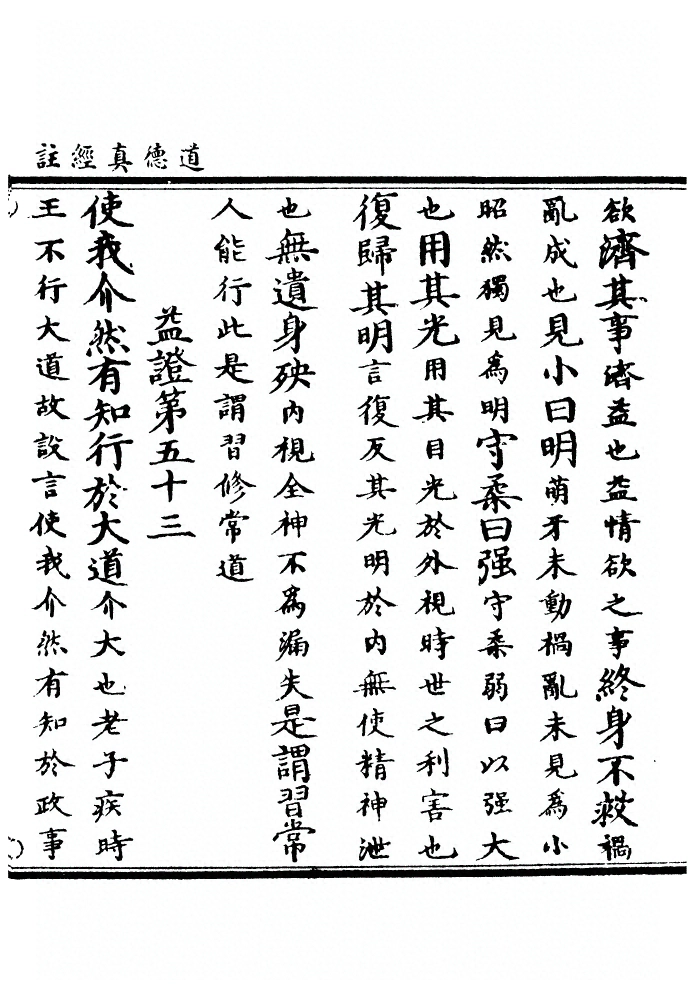 道德真經註
欲濟其事濟益也益情欲之事終身不救禍
亂成也見小曰明萌牙未動禍亂未見為小
昭然獨見為明守柔曰强守柔弱日以强大
也用其光用其目光於外視時世之利害也
復歸其明言復反其光明於內無使精神泄
也無遺身殃內視全神不為漏失是謂習常
人能行此是謂習修常道
益證第五十三
使我介然有知行於大道介大也老子疾時
王不行大道故設言使我介然有知於政事